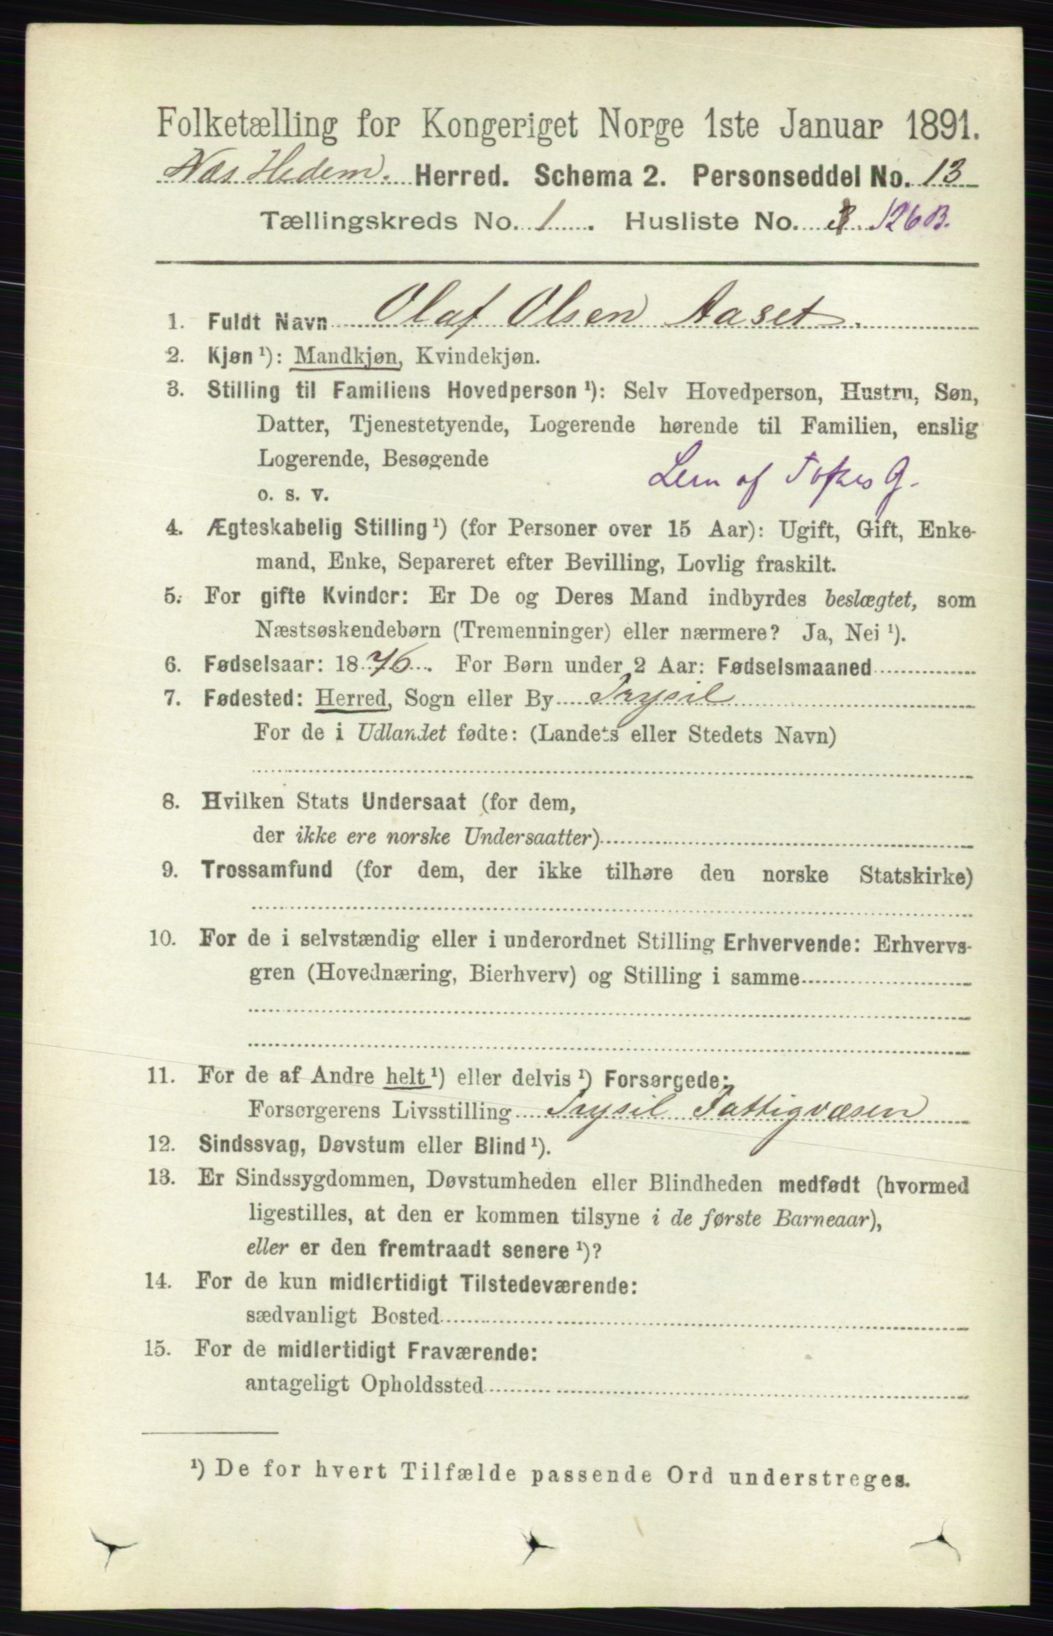 Folketælling for Kongeriget Norge 1ste Januar 1891.
Næs Hedem. Herred. Schema 2. Personseddel No. 13
Tællingskreds No. 1. Husliste No. 126 B.
1. Fuldt Navn Olaf Olsen Aaset.
2. Kjøn ¹): Mandkjøn, Kvindekjøn.
3. Stilling til Familiens Hovedperson ¹): Selv Hovedperson, Hustru, Søn,
Datter, Tjenestetyende, Logerende hørende til Familien, enslig
Logerende, Besøgende
o. s. v. Lem af G.
4. Ægteskabelig Stilling ¹) (for Personer over 15 Aar): Ugift, Gift, Enke-
mand, Enke, Separeret efter Bevilling, Lovlig fraskilt.
5. For gifte Kvinder: Er De og Deres Mand indbyrdes beslægtet, som
Næstsøskendebørn (Tremenninger) eller nærmere? Ja, Nei ¹).
6. Fødselsaar: 1876. For Børn under 2 Aar: Fødselsmaaned
7. Fødested: Herred, Sogn eller By Trysil
For de i Udlandet fødte: (Landets eller Stedets Navn)
8. Hvilken Stats Undersaat (for dem,
der ikke ere norske Undersaatter)
9. Trossamfund (for dem, der ikke tilhøre den norske Statskirke)
10. For de i selvstændig eller i underordnet Stilling Erhvervende: Erhvervs-
gren (Hovednæring, Bierhverv) og Stilling i samme
11. For de af Andre helt ¹) eller delvis ¹) Forsørgede:
Forsørgerens Livsstilling Trysil Fattigvæsen
12. Sindssvag, Døvstum eller Blind ¹).
13. Er Sindssygdommen, Døvstumheden eller Blindheden medfødt (hvormed
ligestilles, at den er kommen tilsyne i de første Barneaar),
eller er den fremtraadt senere ¹)?
14. For de kun midlertidigt Tilstedeværende:
sædvanligt Bosted
15. For de midlertidigt Fraværende:
antageligt Opholdssted
¹) De for hvert Tilfælde passende Ord understreges.